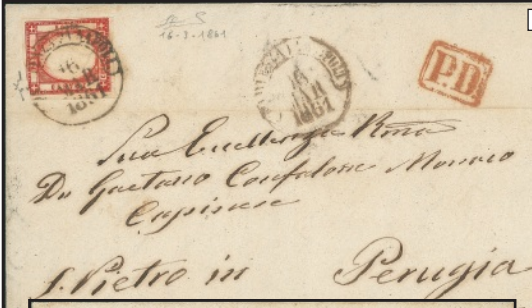 16-3-1861
16
MAR
1861
16
MAR
1861
P.D.
Sua Eccellenza Rma
Dn Gaetano Confalone Monaco
Casinese
S. Pietro in Perugia